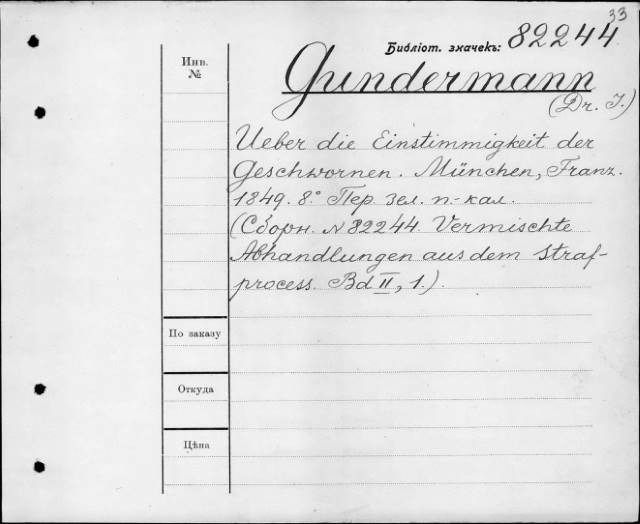 33
Библіот. значекъ: 82244.
Инв.
№
Gundermann
(Dr. I.)
Ueber die Einstimmigkeit der
Geschwornen. München, Franz.
1849. 8.° Пер. зел. п.-кал.
(Сборн. № 82244. Vermischte
Abhandlungen aus dem Straf-
process. Bd II, 1.).
По заказу
Откуда
Цѣна